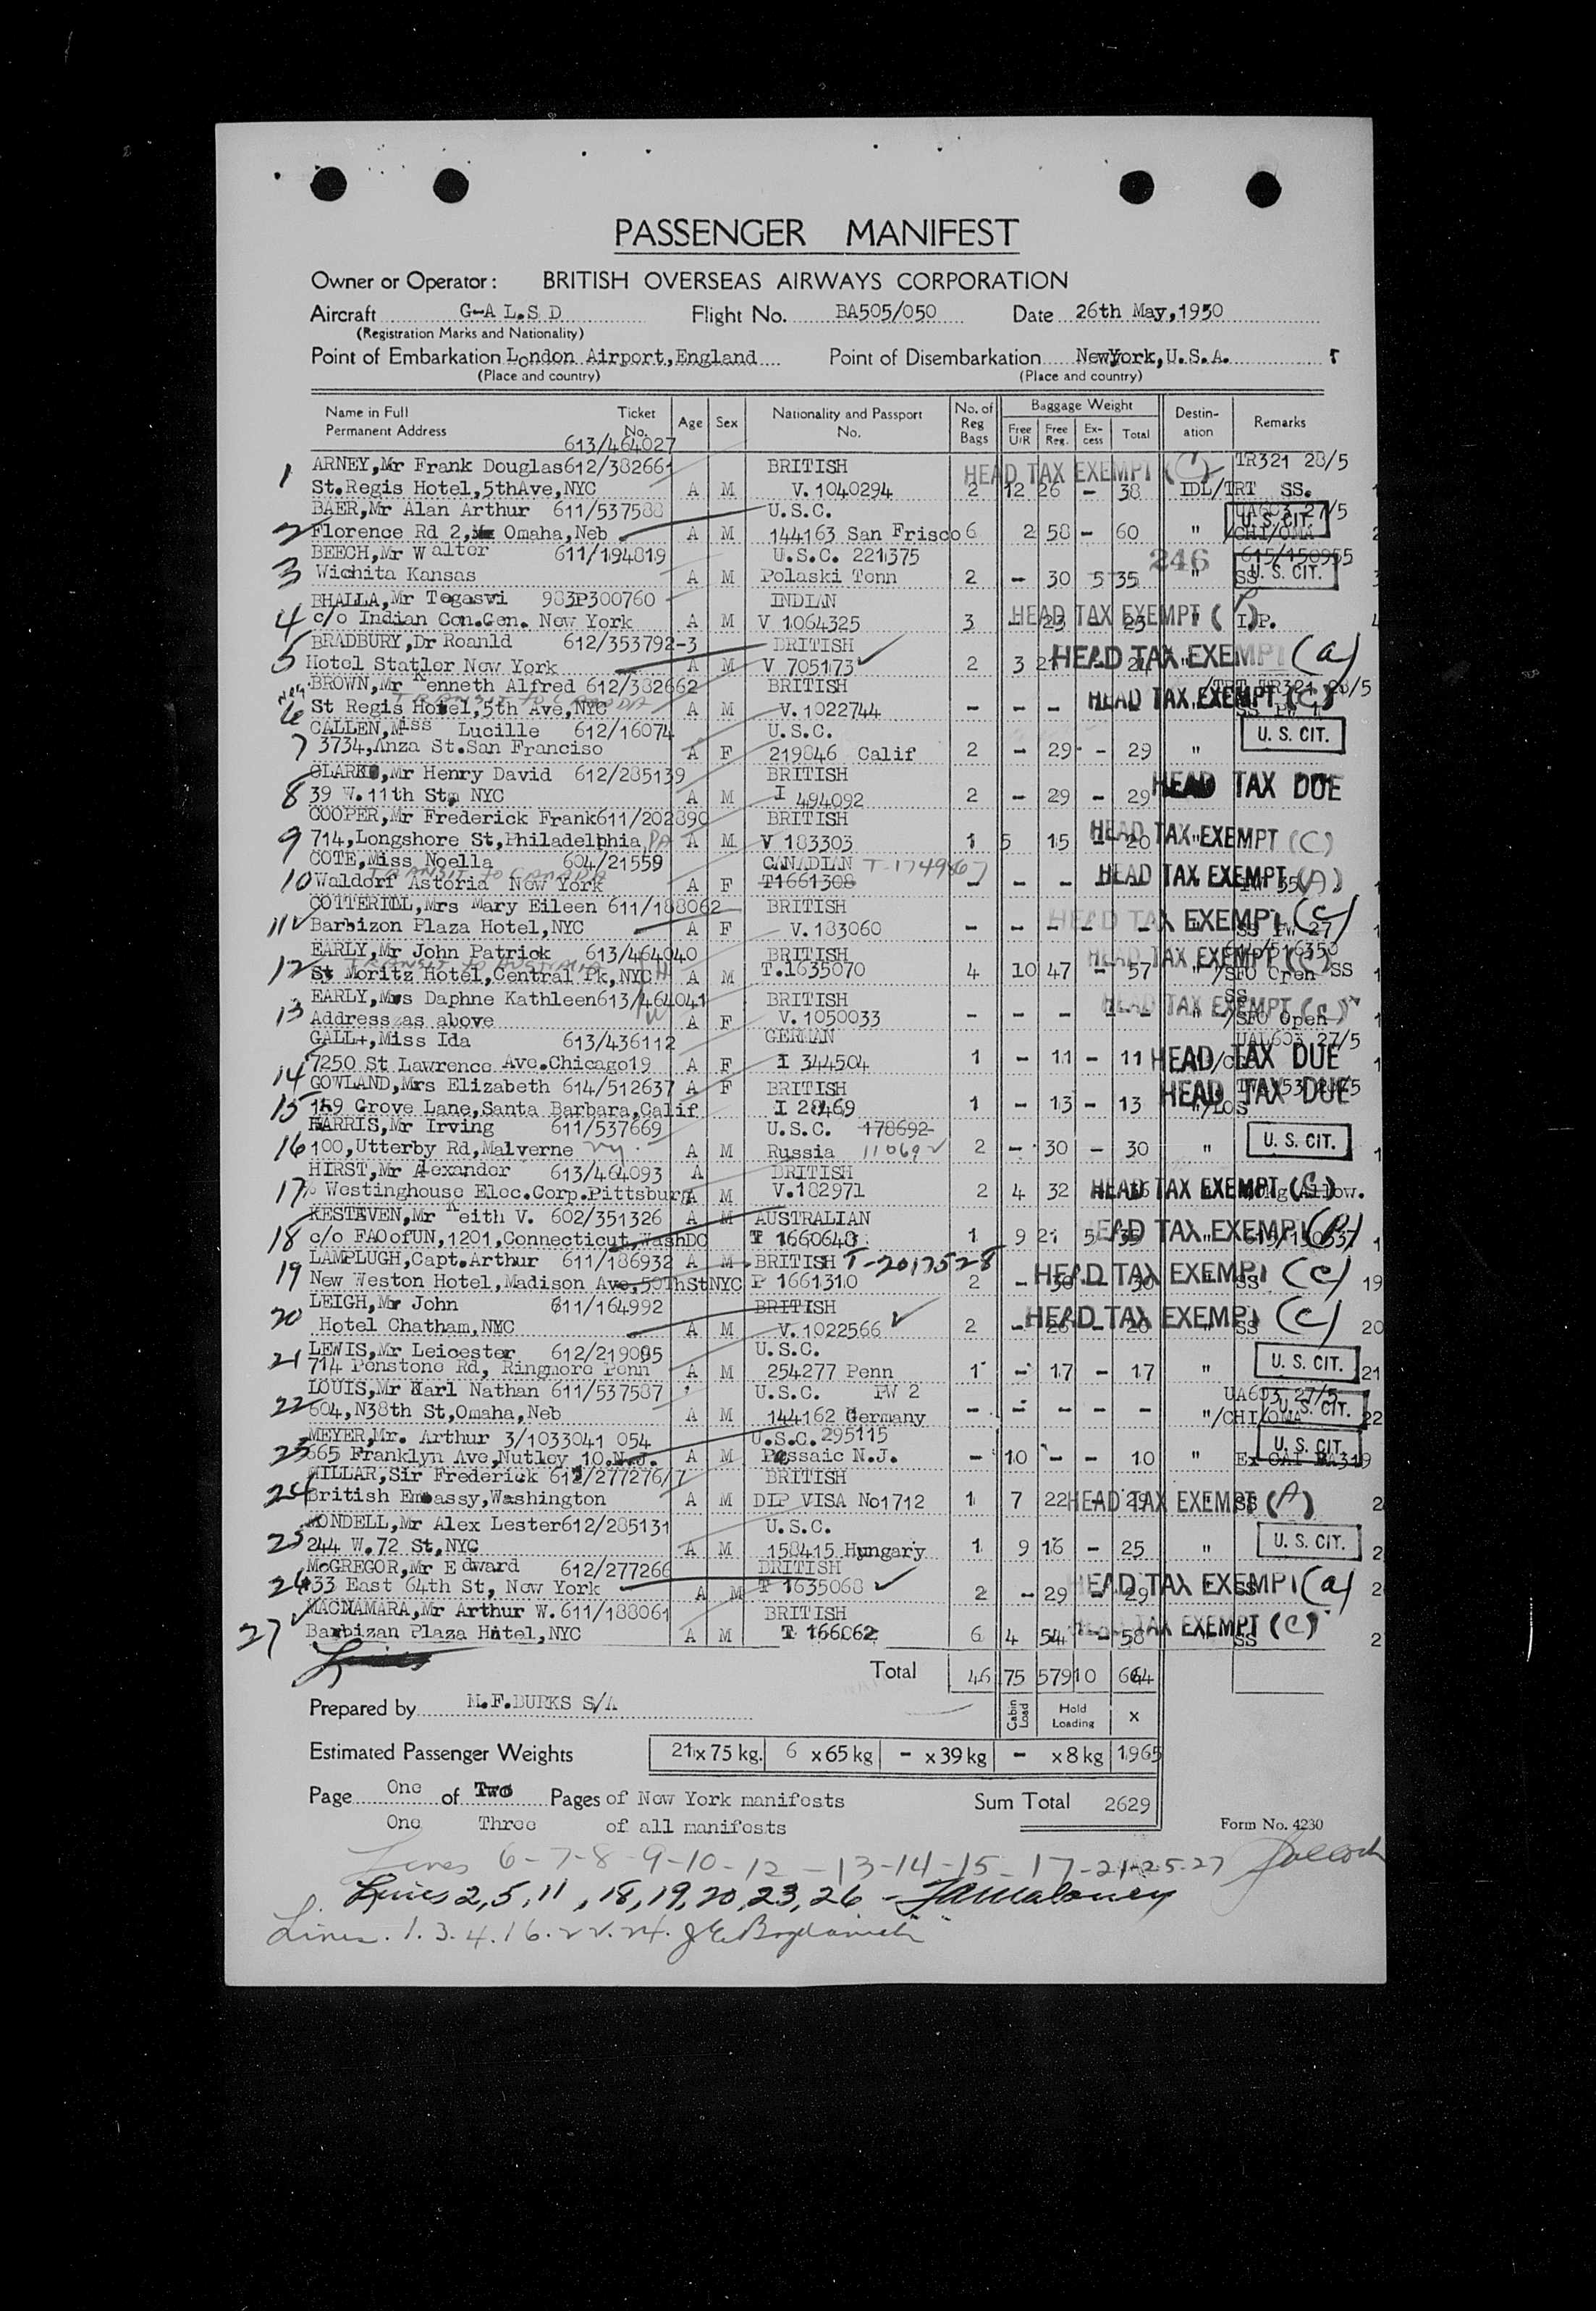 PASSENGER MANIFEST
Owner or Operator: BRITISH OVERSEAS AIRWAYS CORPORATION
Aircraft G-A L.S D Flight No. BA505/050 Date 26th May,1950
(Registration Marks and Nationality)
Point of Embarkation London Airport,England Point of Disembarkation NewYork,U.S.A.
(Place and country) (Place and country)
Name in Full Permanent Address Ticket No. Age Sex Nationality and Passport No. No. of Reg Bags Baggage Weight Free U/R Free Reg. Ex-cess Total Destin-ation Remarks
613/464027
1 ARNEY,Mr Frank Douglas 612/382661 BRITISH HEAD TAX EXEMPT (C) TR321 28/5
St.Regis Hotel,5thAve,NYC A M V.1040294 2 12 26 - 38 IDL/TRT SS.
BAER,Mr Alan Arthur 611/537588 U.S.C. UA603 27/5 U. S. CIT.
2 Florence Rd 2, Omaha,Neb A M 144163 San Frisco 6 2 58 - 60 " /CHI/OMA 2
BEECH,Mr Walter 611/194819 U.S.C. 221375 246 615/150955
3 Wichita Kansas A M Polaski Tenn 2 - 30 5 35 " SS U. S. CIT. 3
BHALLA,Mr Tegasvi 983P300760 INDIAN
4 c/o Indian Con.Gen. New York A M V 1064325 3 HEAD TAX EXEMPT ( ) I.P. 4
BRADBURY,Dr Roanld 612/353792-3 BRITISH
5 Hotel Statler New York A M V 705173 2 3 21 HEAD TAX EXEMPT (a)
BROWN,Mr Kenneth Alfred 612/382662 BRITISH /TRT TR321 28/5
6 St Regis Hotel,5th Ave,NYC A M V.1022744 - - - HEAD TAX EXEMPT (C)
CALLEN,Miss Lucille 612/16074 U.S.C.
7 3734,Anza St.San Franciso A F 219846 Calif 2 - 29 - 29 " U. S. CIT.
CLARK,Mr Henry David 612/285139 BRITISH
8 39 W.11th St, NYC A M I 494092 2 - 29 - 29 HEAD TAX DUE
COOPER,Mr Frederick Frank 611/202890 BRITISH
9 714,Longshore St,Philadelphia PA A M V 183303 1 5 15 - 20 " HEAD TAX EXEMPT (C)
COTE,Miss Noella 604/21559 CANADIAN T-1749867
TRANSIT TO CANADA
10 Waldorf Astoria New York A F T1661308 - - - HEAD TAX EXEMPT (A)
COTTERILL,Mrs Mary Eileen 611/188062 BRITISH
11 Barbizon Plaza Hotel,NYC A F V.183060 - - - - - HEAD TAX EXEMPT (C) SS PW 27
EARLY,Mr John Patrick 613/464040 BRITISH HEAD TAX EXEMPT (C)
12 St Moritz Hotel,Central Pk,NYC A M T.1635070 4 10 47 - 57 " /SFO Open SS
EARLY,Mrs Daphne Kathleen 613/464041 BRITISH SS
13 Address as above A F V.1050033 - - - - - HEAD TAX EXEMPT (C) " /SFO Open
GALL+,Miss Ida 613/436112 GERMAN UAL603 27/5
14 7250 St Lawrence Ave.Chicago19 A F I 344504 1 - 11 - 11 HEAD TAX DUE
GOWLAND,Mrs Elizabeth 614/512637 A F BRITISH HEAD TAX DUE
15 159 Grove Lane,Santa Barbara,Calif I 28469 1 - 13 - 13 "/LOS
HARRIS,Mr Irving 611/537669 U.S.C. 178692
16 100,Utterby Rd,Malverne ny. A M Russia 11069 2 - 30 - 30 " U. S. CIT.
HIRST,Mr Alexander 613/464093 A BRITISH
17 Westinghouse Elec.Corp.Pittsburg A M V.182971 2 4 32 HEAD TAX EXEMPT (C) Allow.
KESTEVEN,Mr Keith V. 602/351326 A M AUSTRALIAN
18 c/o FAOofUN,1201,Connecticut,WashDC T 1660648 1 9 21 5 35 HEAD TAX EXEMPT (A)
LAMPLUGH,Capt.Arthur 611/186932 A M BRITISH T-2017528
19 New Weston Hotel,Madison Ave,50ThStNYC P 1661310 2 - 30 - 30 HEAD TAX EXEMPT (C) SS 19
LEIGH,Mr John 611/164992 BRITISH
20 Hotel Chatham,NYC A M V.1022566 2 - 26 - 26 HEAD TAX EXEMPT (C) SS 20
LEWIS,Mr Leicester 612/219095 U.S.C.
21 714 Penstone Rd, Ringmore Penn A M 254277 Penn 1 - 17 - 17 " U. S. CIT. 21
LOUIS,Mr Karl Nathan 611/537587 U.S.C. PW 2 UA603 27/5
22 604,N38th St,Omaha,Neb A M 144162 Germany - - - - - "/CHI/OMA U. S. CIT. 22
MEYER,Mr. Arthur 3/1033041 054 U.S.C.295115
23 665 Franklyn Ave,Nutley 10.N.J. A M Passaic N.J. - 10 - - 10 " U. S. CIT.
MILLAR,Sir Frederick 612/277276/7 BRITISH
24 British Embassy,Washington A M DIP VISA No1712 1 7 22 - 29 HEAD TAX EXEMPT (A) SS 2
MONDELL,Mr Alex Lester 612/285131 U.S.C.
25 244 W.72 St,NYC A M 158415 Hungary 1 9 16 - 25 " U. S. CIT. 2
McGREGOR,Mr Edward 612/277266 BRITISH
26 33 East 64th St, New York A M T 1635068 2 - 29 - 29 HEAD TAX EXEMPT (a) SS 2
MACNAMARA,Mr Arthur W. 611/188061 BRITISH
27 Barbizan Plaza Hotel,NYC A M T 166062 6 4 54 - 58 HEAD TAX EXEMPT (C) SS 2
Total 46 75 579 10 664
Prepared by M.F.BURKS S/A Cabin Load Hold Loading x
Estimated Passenger Weights 21 x 75 kg. 6 x 65 kg - x 39 kg - x 8 kg 1965
Page One of Two Pages of New York manifests Sum Total 2629
One Three of all manifests Form No. 4230
Lines 6-7-8-9-10-12-13-14-15-17-21-25-27
Lines 2,5,11,18,19,20,23,26 - Maloney
Lines. 1.3.4.16.22.24.